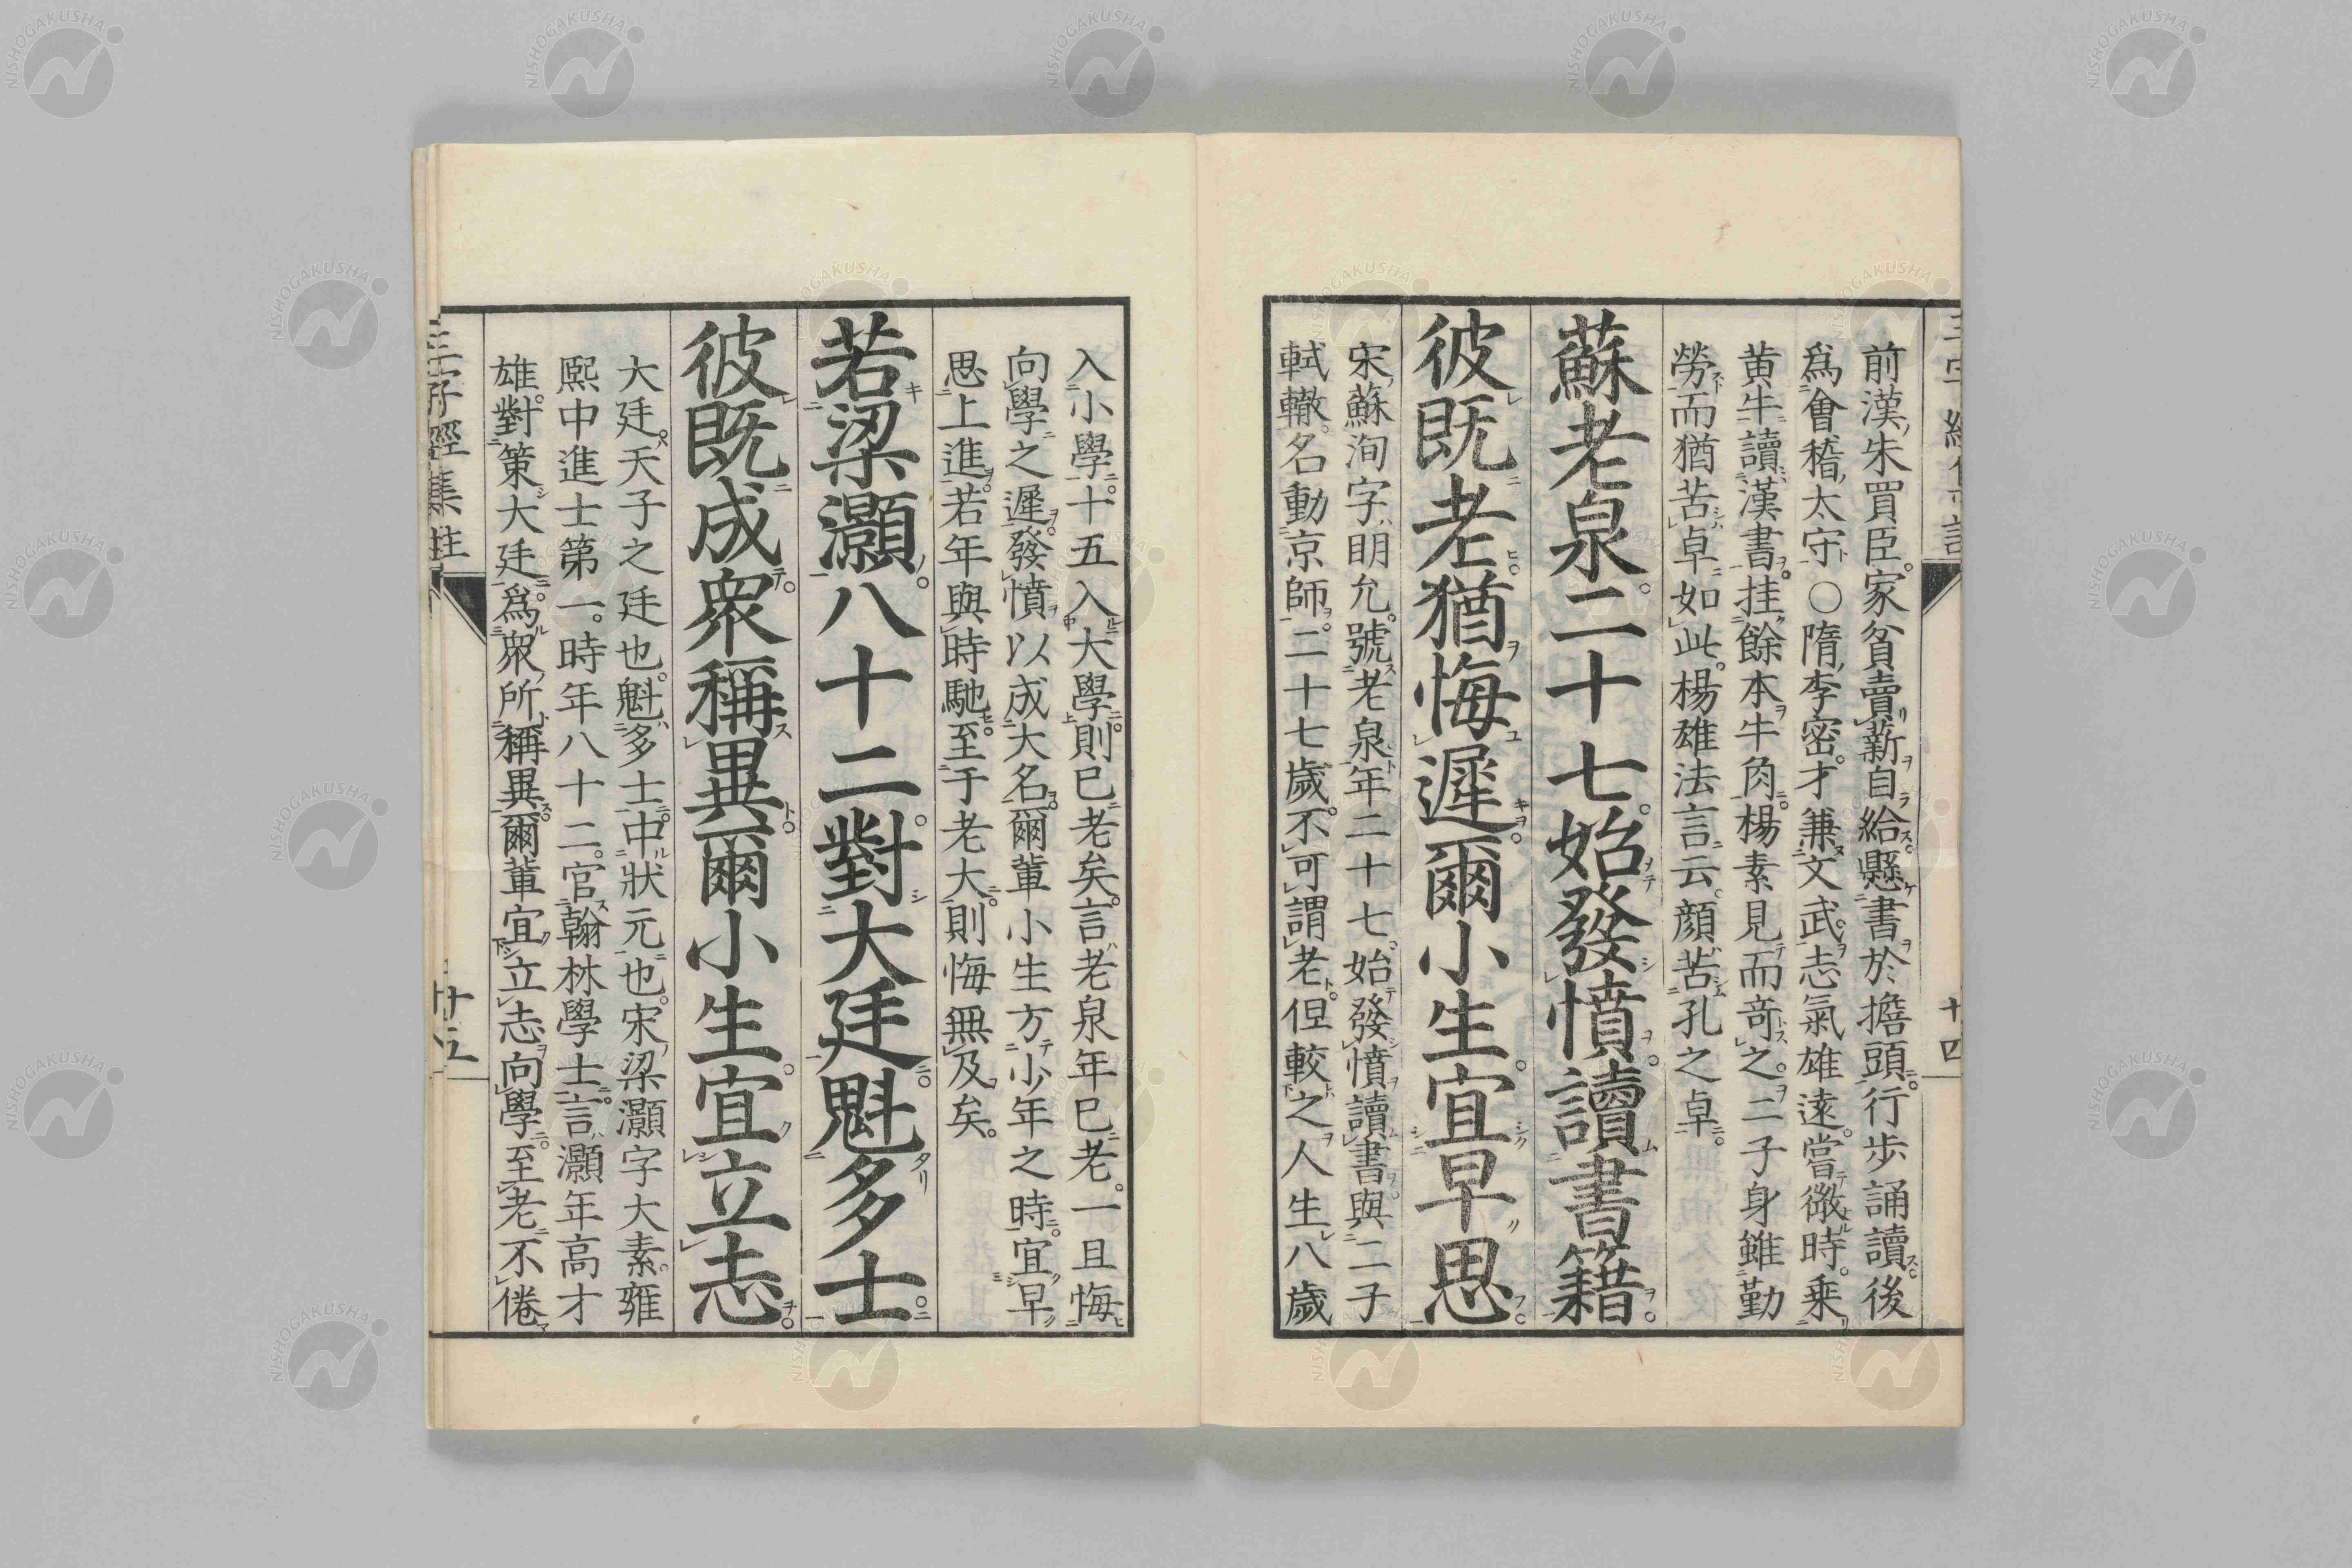 前漢朱買臣。家貧賣薪自給。懸書於擔頭。行歩誦讀。後
爲會稽太守○隋李密。才兼文武。志氣雄遠。嘗微時。乘
黄牛讀漢書。挂餘本牛角。楊素見而竒之。二子身雖勤
勞。而猶苦卓如此。楊雄法言云。顔苦孔之卓。
蘇老泉。二十七。始發憤。讀書籍。
彼既老。猶悔遲。爾小生。宜早思。
宋蘇洵字明允。號老泉年二十七。始發憤讀書。與二子
軾轍。名動京師。二十七歳。不可謂老。但較之人生八歳
入小學。十五入大學。則已老矣。言老泉年已老。一旦悔
向學之遲。發憤以成大名。爾輩小生方少年之時。宜早
思上進。若年與時馳。至于老大。則悔無及矣。
若梁灝。八十二。對大廷。魁多士。
彼既成。衆稱異。爾小生。宜立志。
大廷。天子之廷也。魁多士。中狀元也。宋梁灝字大素。雍
熙中進士第一。時年八十二。官翰林學士。言灝年高才
雄。對策大廷。爲衆所稱異。爾輩宜立志向學。至老不倦
三字經集註
廿四
廿五
NISHOGAKUSHA